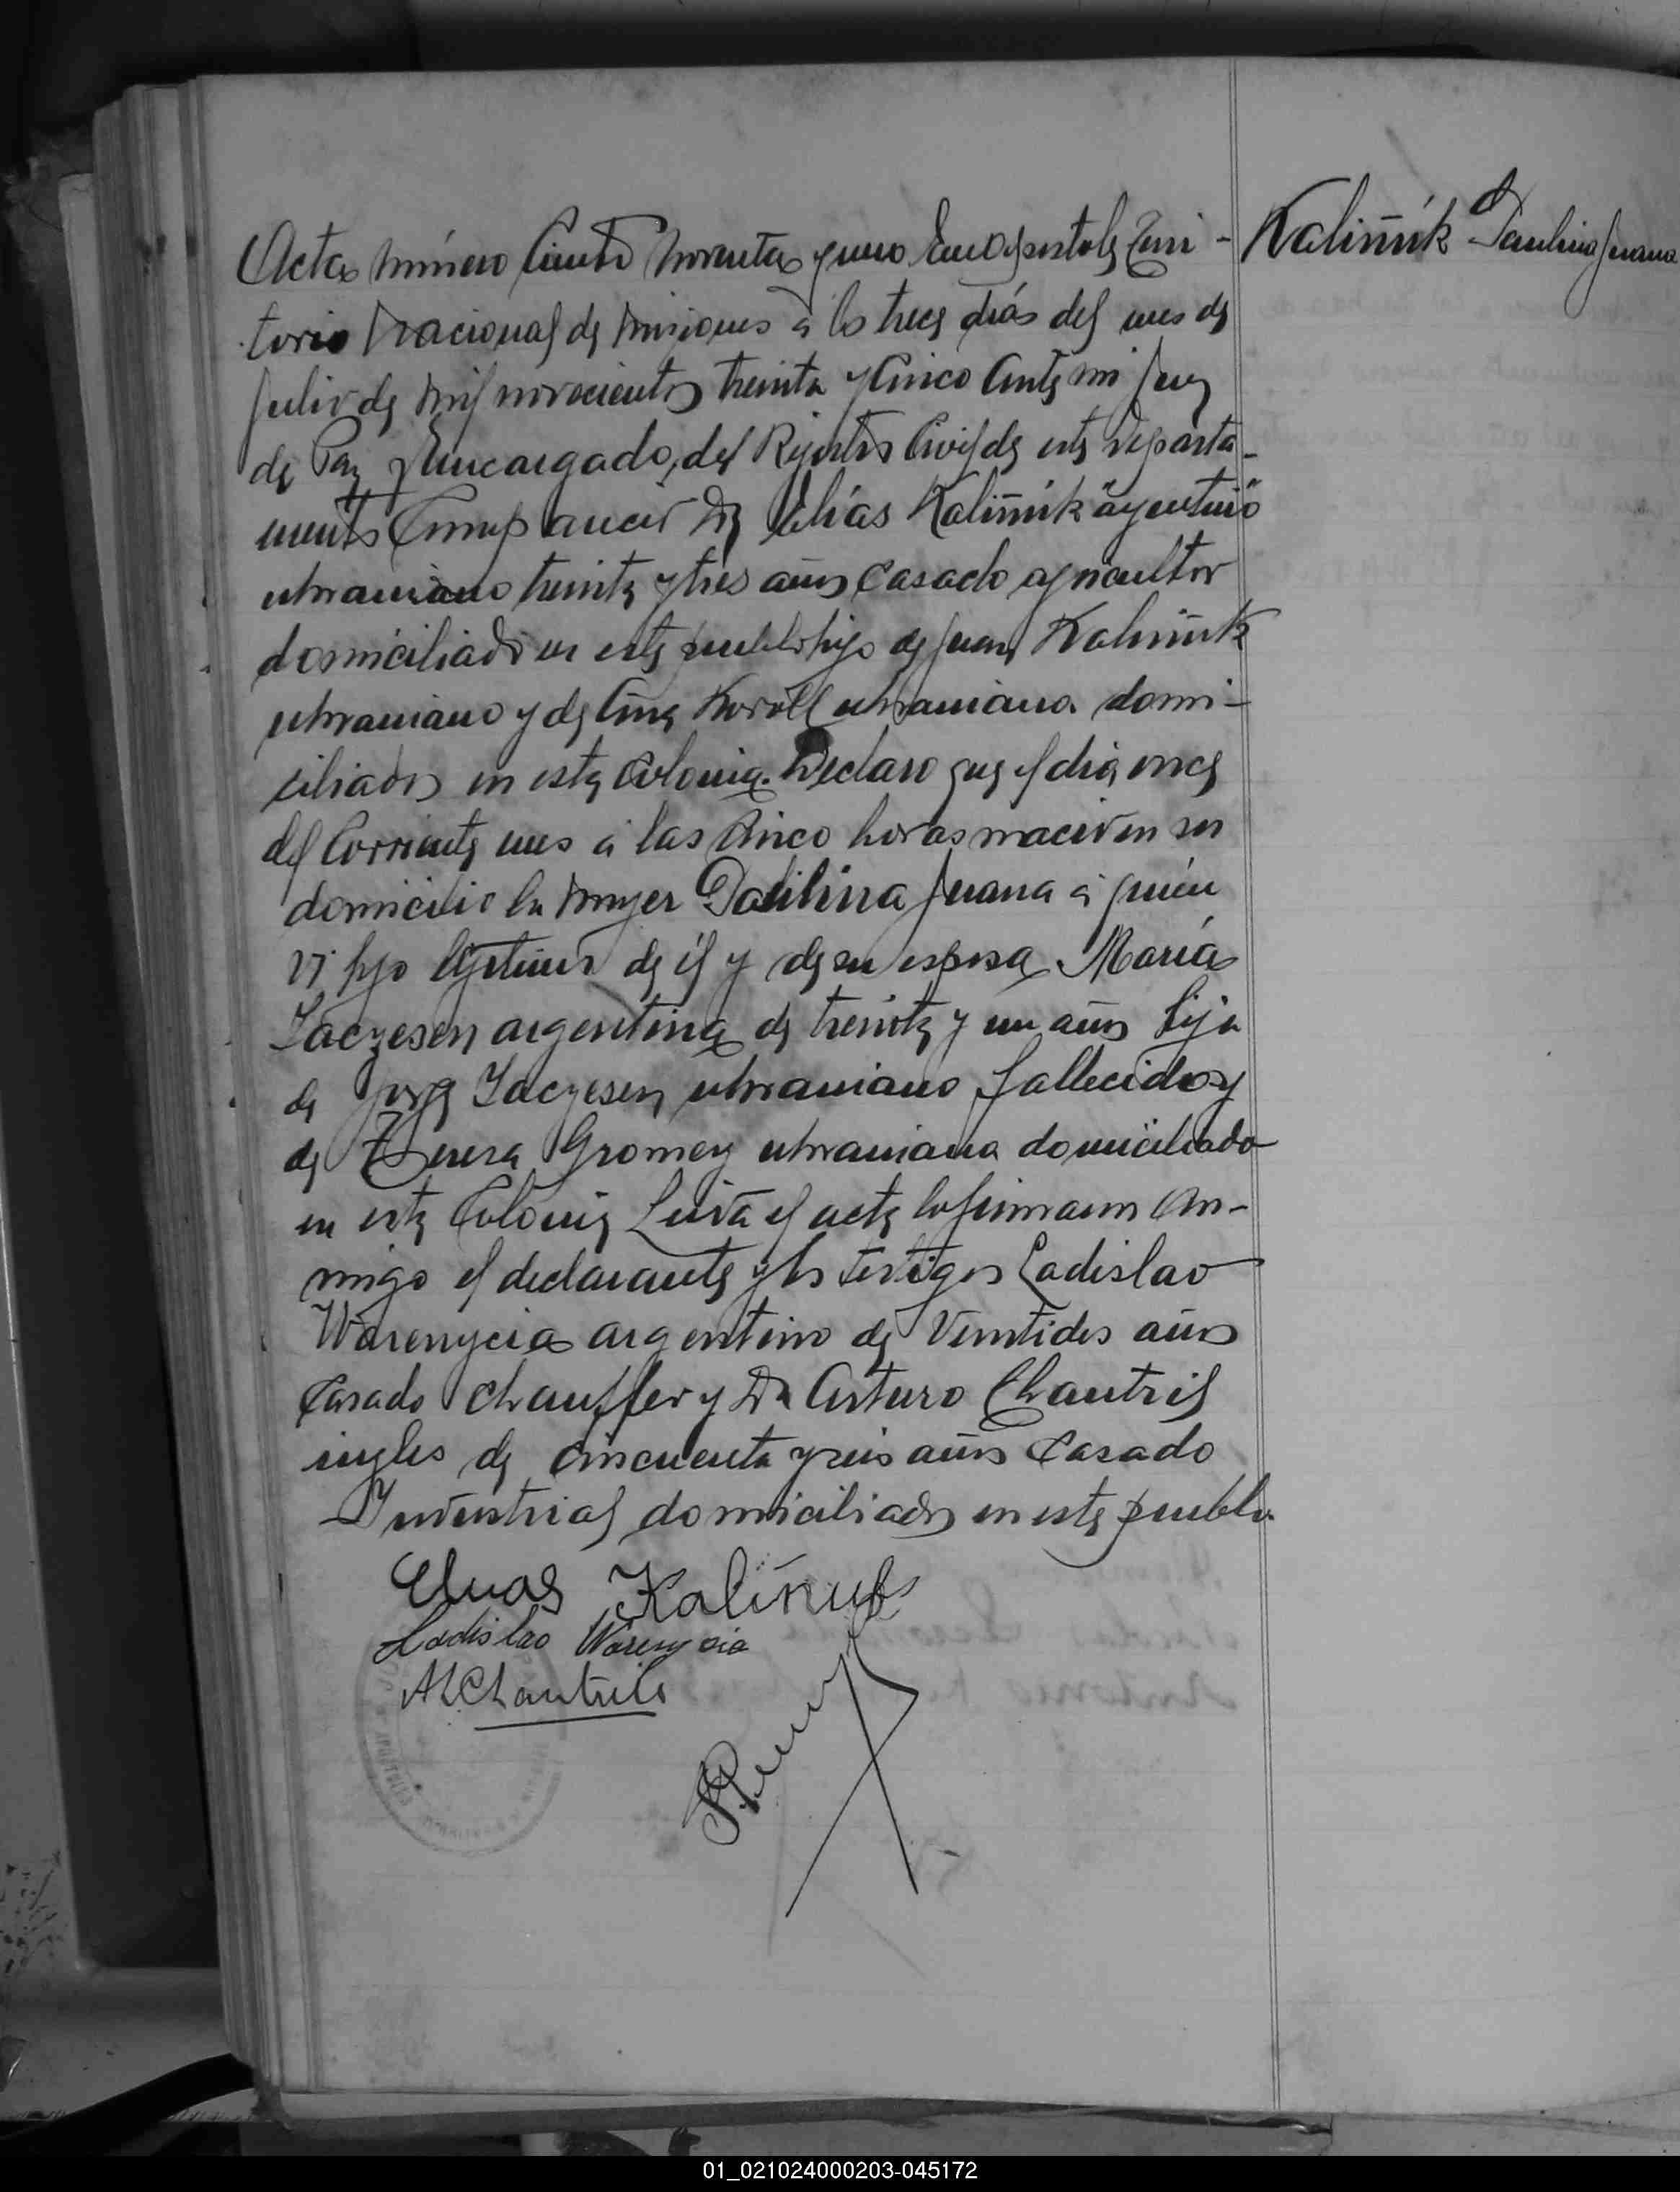 Acta número Ciento noventa y uno En Apostoles Terri-
torio Nacional de Misiones á los trece días del mes de
Julio de mil novecientos treinta y Cinco Ante mi Juez
de Paz y Encargado del Rejistro Civil de este departa-
mento Compareció Dn Elías Kaliñuk "argentino"
ukraniano treinta y tres años Casado agricultor
domiciliado en este pueblo hijo de Juan Kaliñuk
ukraniano y de Ana Koroll ukraniana domi-
ciliados en esta Colonia. Declaro que el día once
del Corriente mes á las cinco horas nacio en su
domicilio la mujer Paulina Juana á quien
vi hijo lejitimo de él y de su esposa María
Iaczesen argentina de treinta y un años hija
de Jorge Iaczesen ukraniano fallecido y
de Teresa Gromey ukraniana domiciliada
en esta Colonia Leida el acta la firmaron Con-
migo el declarante y los testigos Ladislao
Warenycia argentino de Veintidos años
Casado chauffer y Dn Arturo Chantril
ingles de cincuenta y seis años Casado
Industrial domiciliados en este pueblo.
Elias Kaliñuk
Ladislao Warenycia
A Chantrill
Kaliñuk Paulina Juana
APOSTOLES
01_021024000203-045172